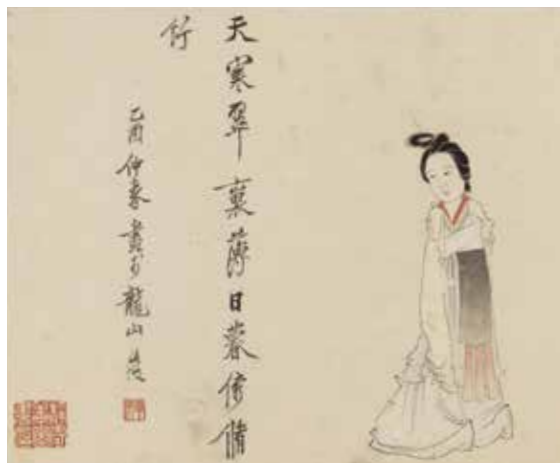 天寒翠褏薄日暮倚脩
竹
乙酉仲春畫于龍山